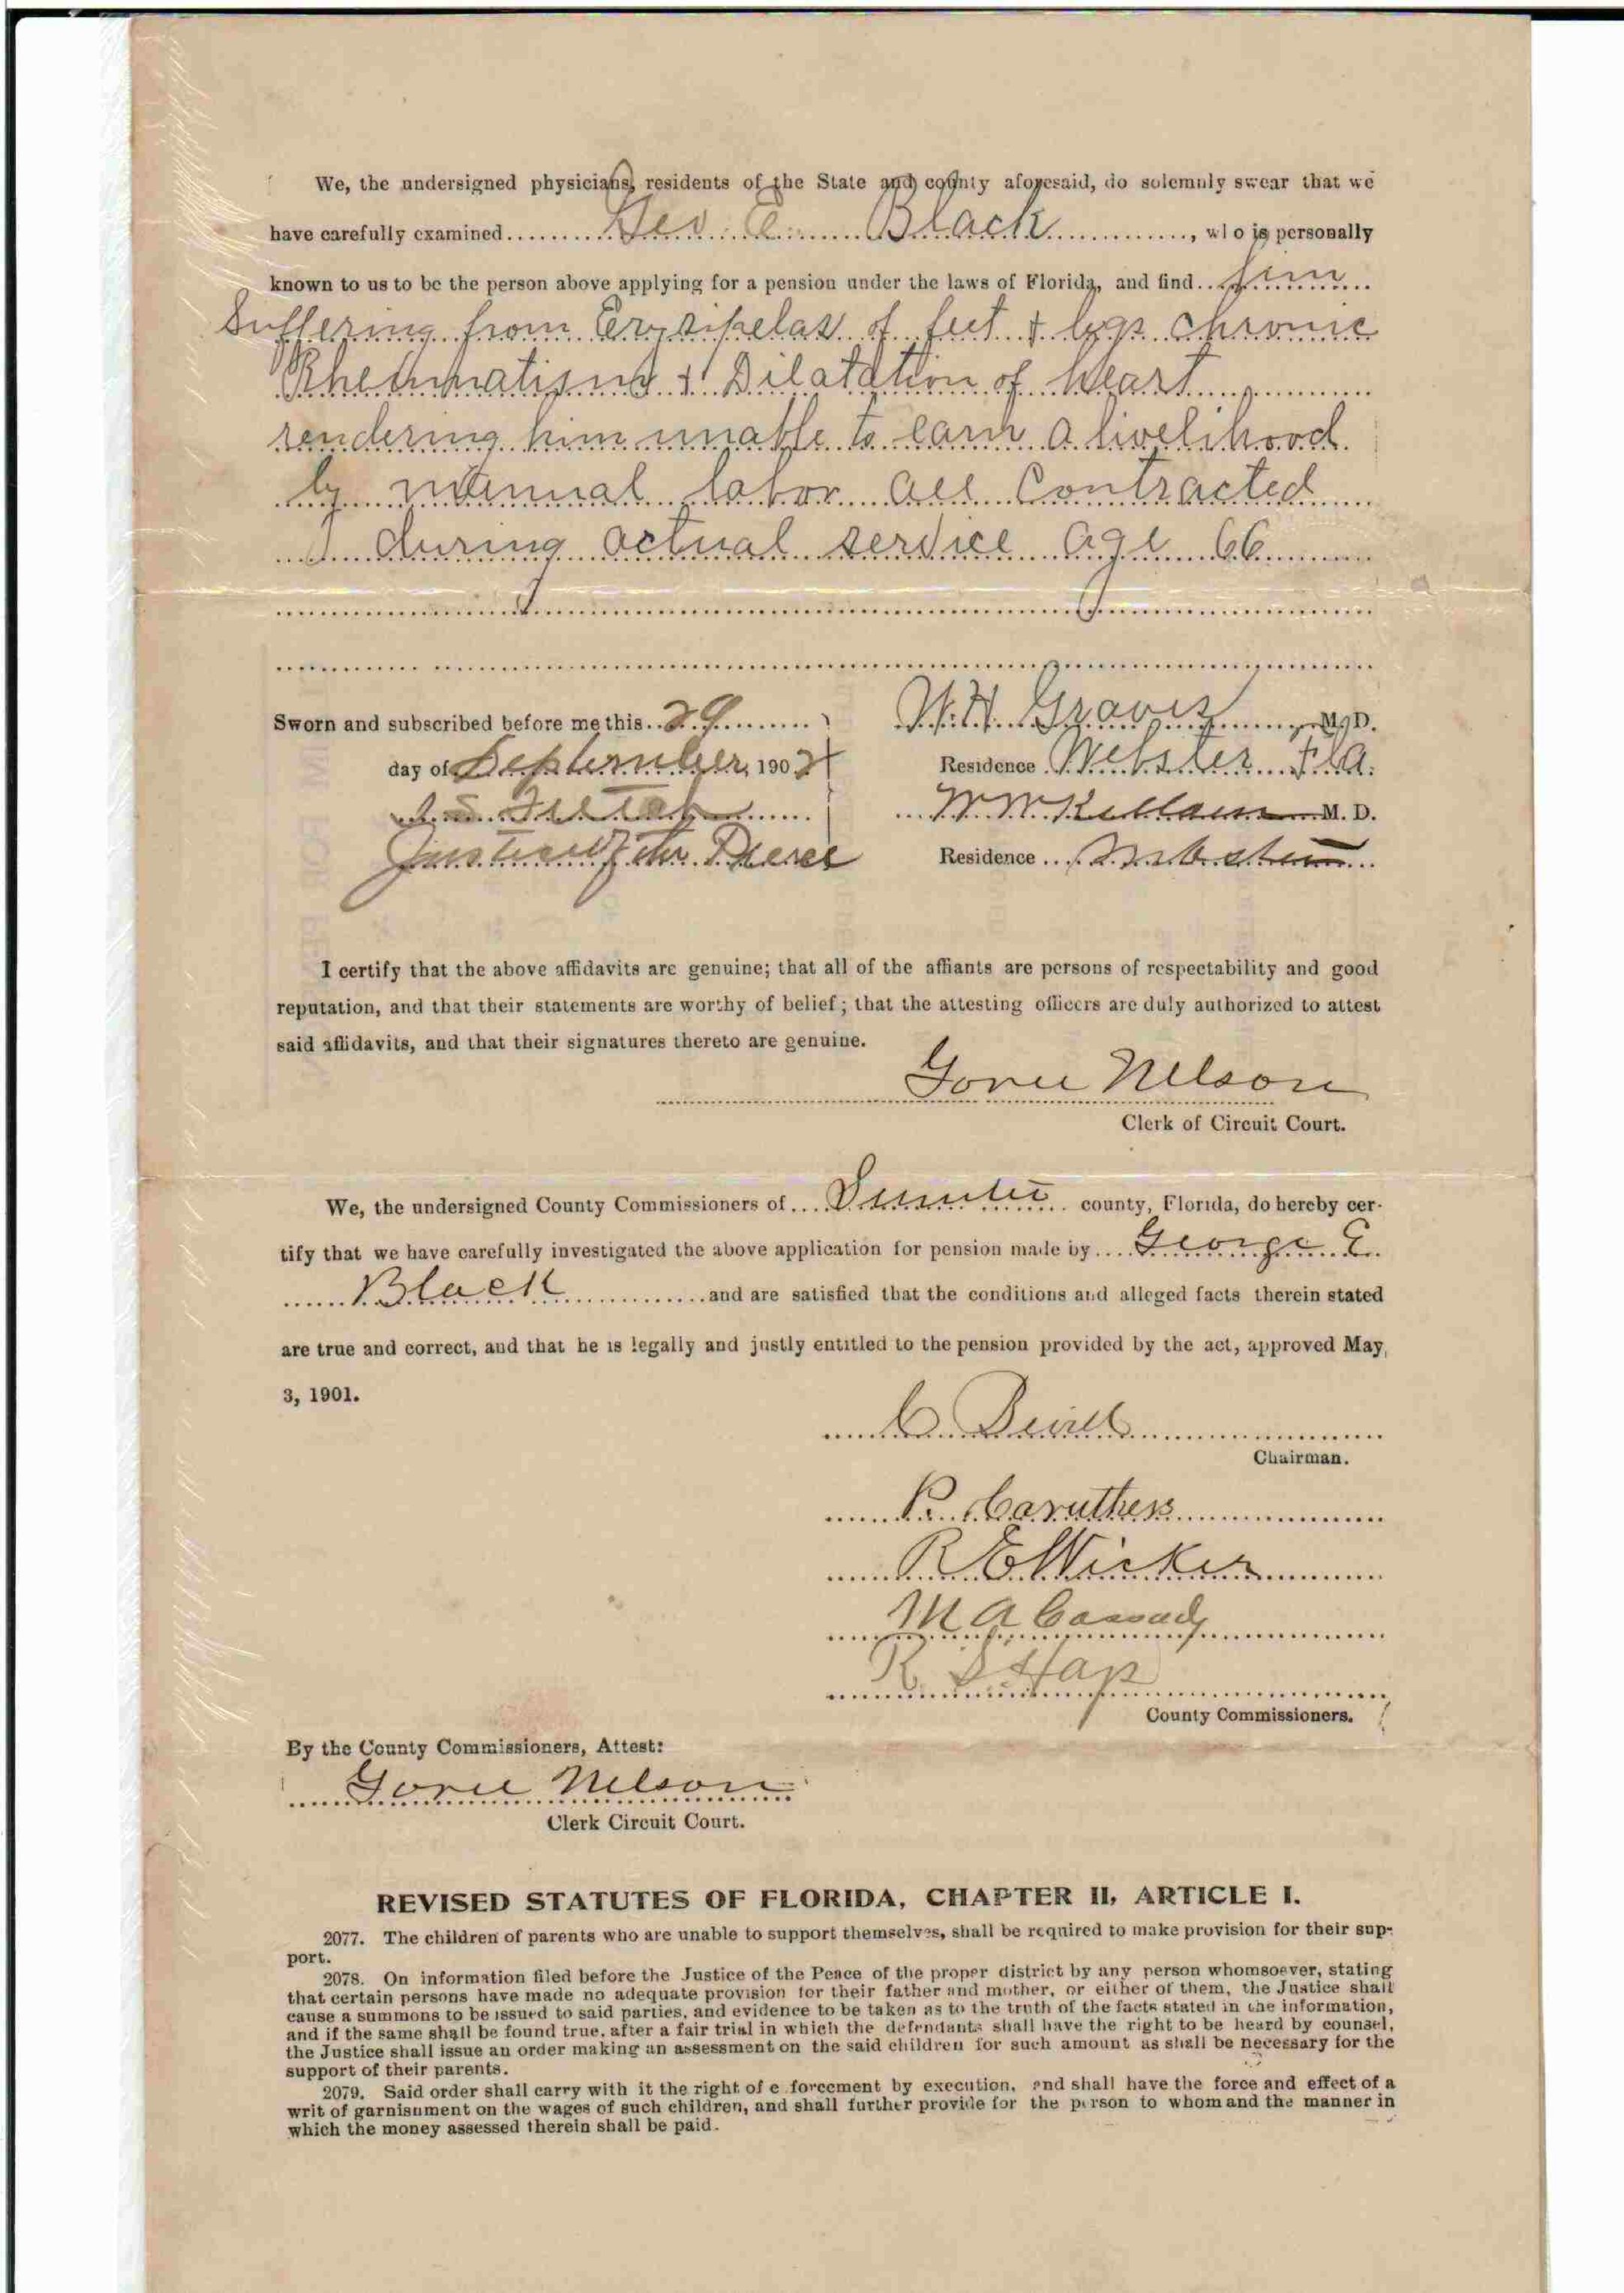 We, the undersigned physicians, residents of the State and county aforesaid, do solemnly swear that we
have carefully examined Geo. E. Black, who is personally
known to us to be the person above applying for a pension under the laws of Florida, and find him
Suffering from Erysipelas of feet & legs chronic
Rheumatism & Dilatation of heart
rendering him unable to earn a livelihood
by manual labor all Contracted
during actual service age 66
Sworn and subscribed before me this 29
W. H. Graves M. D.
day of September, 190
Residence Webster Fla.
W M M. D.
Justice of the Peace
Residence Webster
I certify that the above affidavits are genuine; that all of the affiants are persons of respectability and good
reputation, and that their statements are worthy of belief; that the attesting officers are duly authorized to attest
said affidavits, and that their signatures thereto are genuine.
Nelson
Clerk of Circuit Court.
We, the undersigned County Commissioners of Sumter county, Florida, do hereby cer-
tify that we have carefully investigated the above application for pension made by George E.
Black and are satisfied that the conditions and alleged facts therein stated
are true and correct, and that he is legally and justly entitled to the pension provided by the act, approved May
3, 1901.
C
Chairman.
R. Caruthers
R E Wicker
M A Cassady
R S Hap
County Commissioners.
By the County Commissioners, Attest:
Nelson
Clerk Circuit Court.
REVISED STATUTES OF FLORIDA, CHAPTER II, ARTICLE I.
2077. The children of parents who are unable to support themselves, shall be required to make provision for their sup-
port.
2078. On information filed before the Justice of the Peace of the proper district by any person whomsoever, stating
that certain persons have made no adequate provision for their father and mother, or either of them, the Justice shall
cause a summons to be issued to said parties, and evidence to be taken as to the truth of the facts stated in the information,
and if the same shall be found true, after a fair trial in which the defendants shall have the right to be heard by counsel,
the Justice shall issue an order making an assessment on the said children for such amount as shall be necessary for the
support of their parents.
2079. Said order shall carry with it the right of e forcement by execution, and shall have the force and effect of a
writ of garnishment on the wages of such children, and shall further provide for the person to whom and the manner in
which the money assessed therein shall be paid.